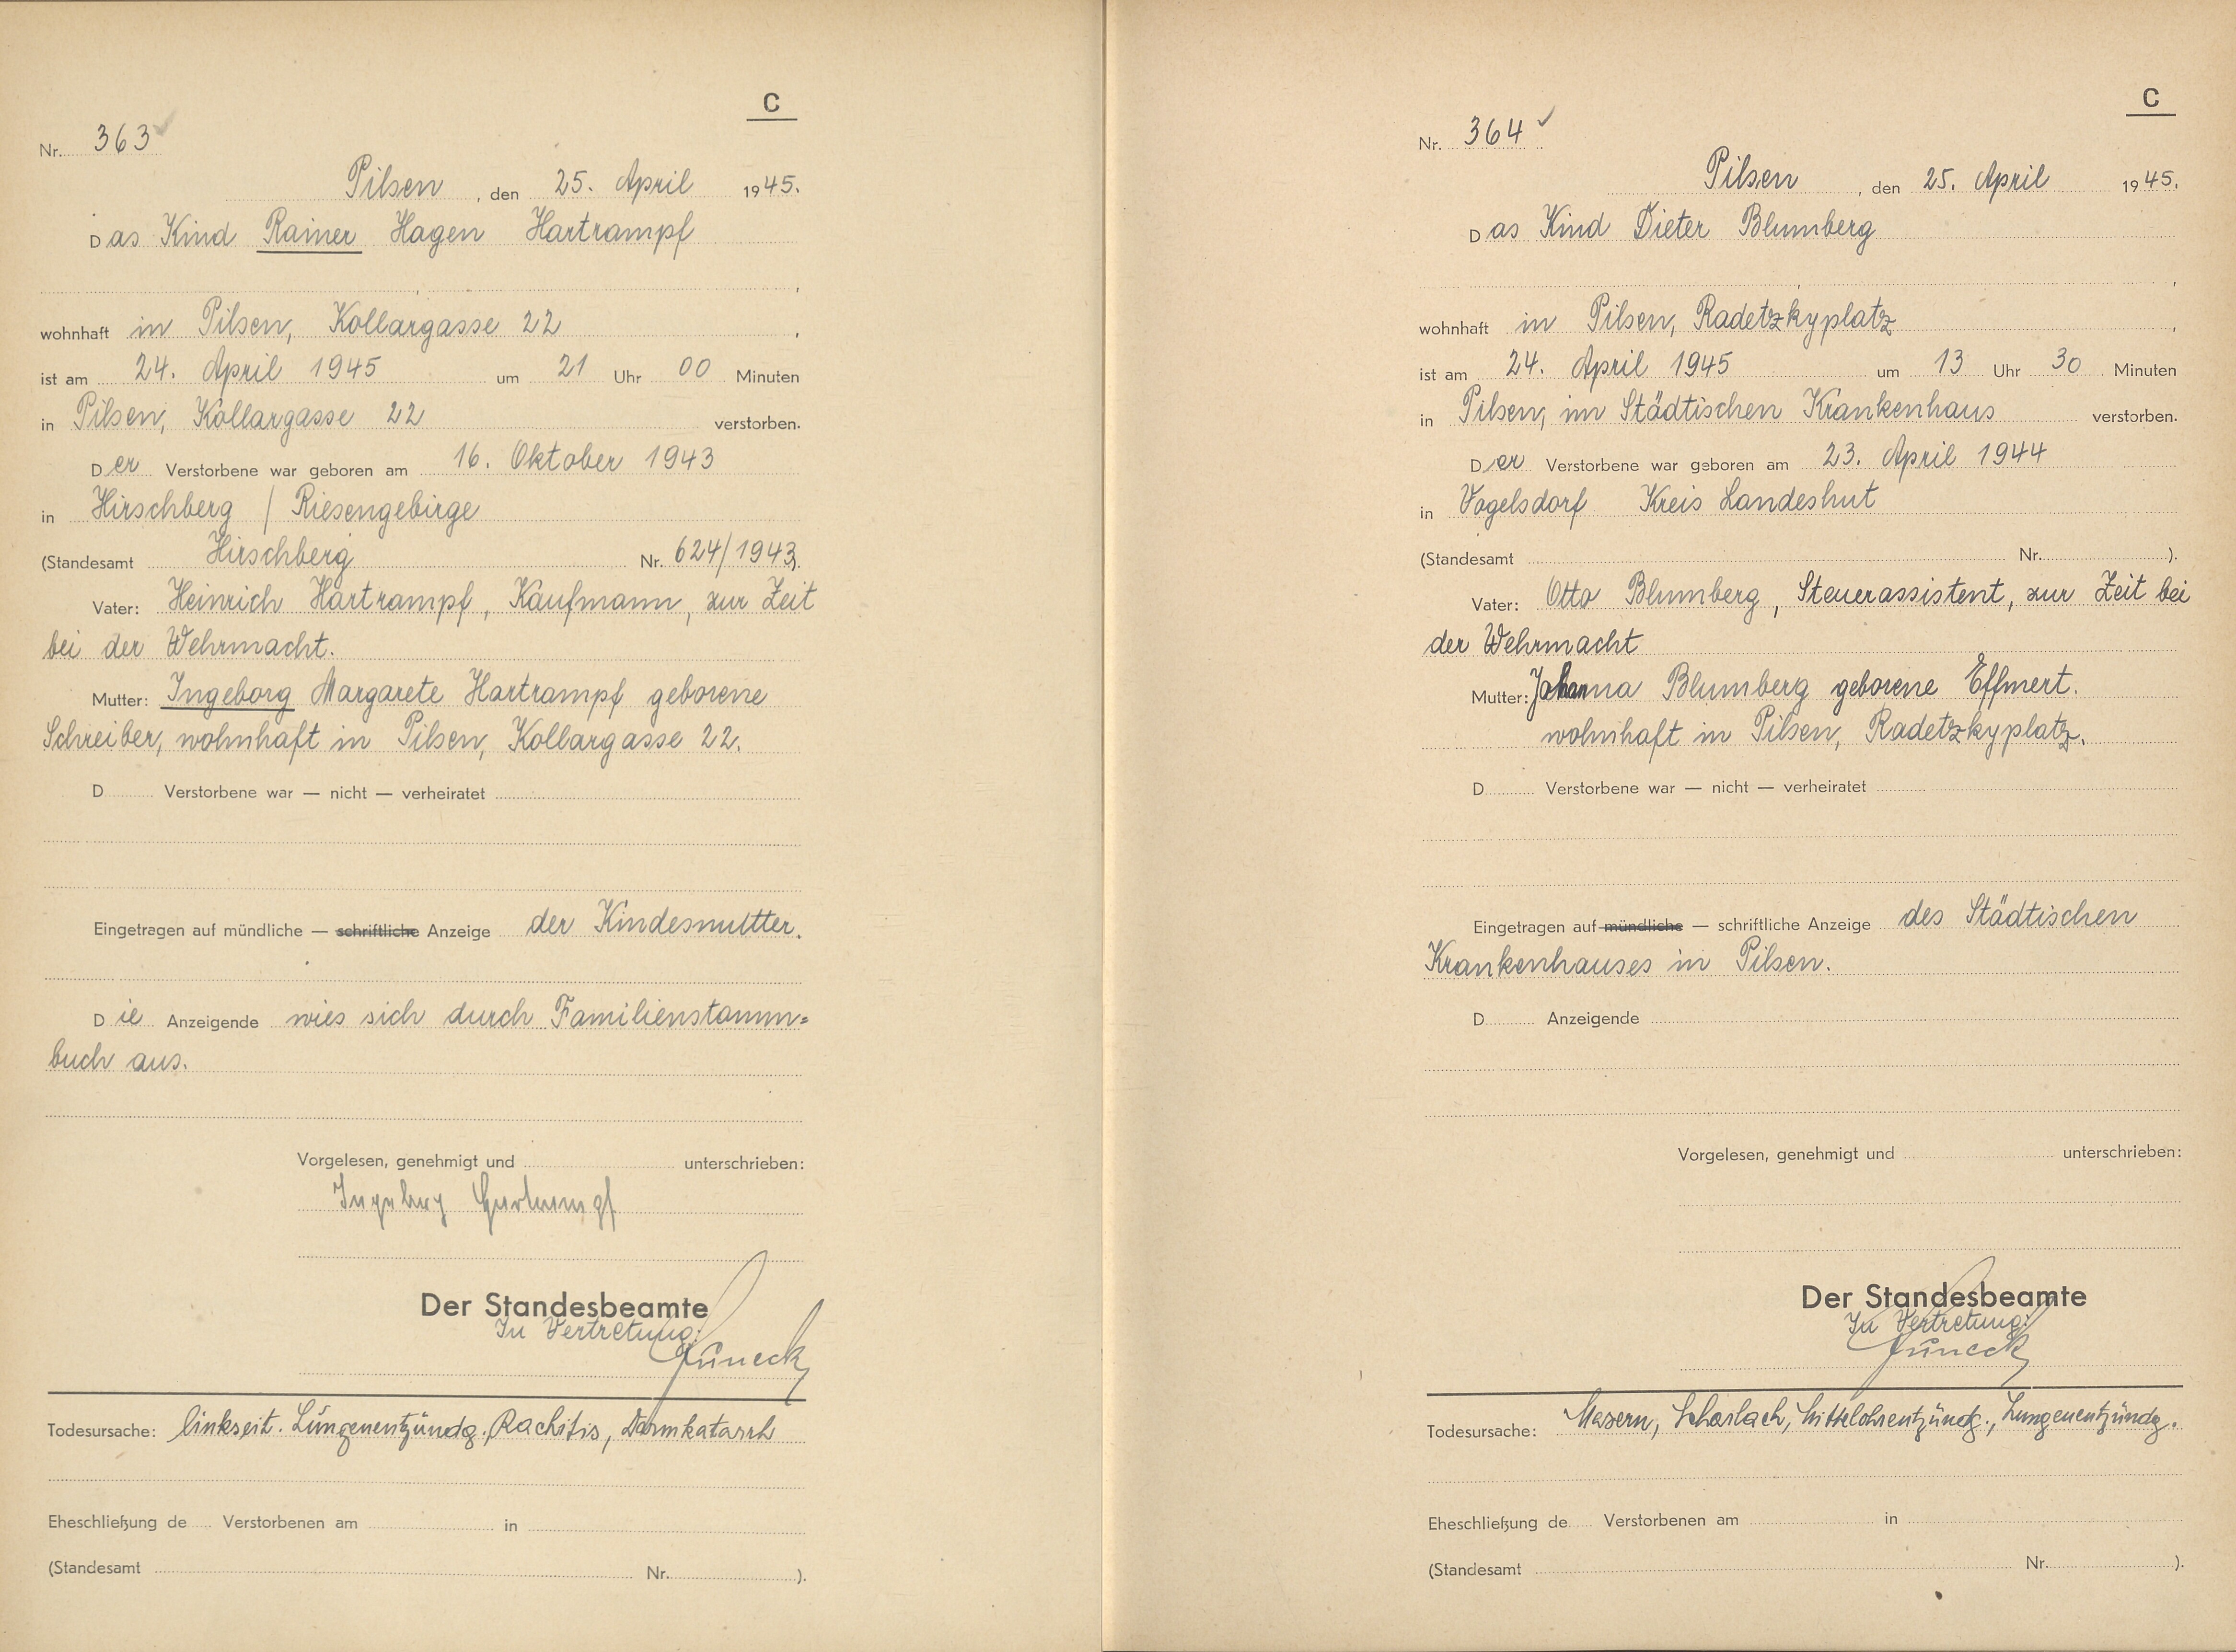 C
Nr. 363
Pilsen, den 25. April 1945.
Das Kind Rainer Hagen Hartrampf
,
wohnhaft in Pilsen, Kollargasse 22,
ist am 24. April 1945 um 21 Uhr 00 Minuten
in Pilsen, Kollargasse 22 verstorben.
Der Verstorbene war geboren am 16. Oktober 1943
in Hirschberg / Riesengebirge
(Standesamt Hirschberg Nr. 624/1943).
Vater: Heinrich Hartrampf, Kaufmann, zur Zeit
bei der Wehrmacht.
Mutter: Ingeborg Margarete Hartrampf geborene
Schreiber, wohnhaft in Pilsen, Kollargasse 22.
D Verstorbene war — nicht — verheiratet
Eingetragen auf mündliche — schriftliche Anzeige der Kindesmutter.
Die Anzeigende wies sich durch Familienstamm=
buch aus.
Vorgelesen, genehmigt und unterschrieben:
Ingeborg Hartrampf
Der Standesbeamte
In Vertretung:
Todesursache: linkseit. Lungenentzündg. Rachitis, Darmkatarrh
Eheschließung de Verstorbenen am in
(Standesamt Nr. ).
C
Nr. 364
Pilsen, den 25. April 1945.
Das Kind Dieter Blumberg
,
wohnhaft in Pilsen, Radetzkyplatz,
ist am 24. April 1945 um 13 Uhr 30 Minuten
in Pilsen, im Städtischen Krankenhaus verstorben.
Der Verstorbene war geboren am 23. April 1944
in Vogelsdorf Kreis Landeshut
(Standesamt Nr. ).
Vater: Otto Blumberg, Steuerassistent, zur Zeit bei
der Wehrmacht
Mutter: Johanna Blumberg geborene Effmert.
wohnhaft in Pilsen, Radetzkyplatz.
D Verstorbene war — nicht — verheiratet
Eingetragen auf mündliche — schriftliche Anzeige des Städtischen
Krankenhauses in Pilsen.
D Anzeigende
Vorgelesen, genehmigt und unterschrieben:
Der Standesbeamte
In Vertretung:
Todesursache: Masern, Scharlach, Mittelohrentzündg., Lungenentzündg.
Eheschließung de Verstorbenen am in
(Standesamt Nr. ).